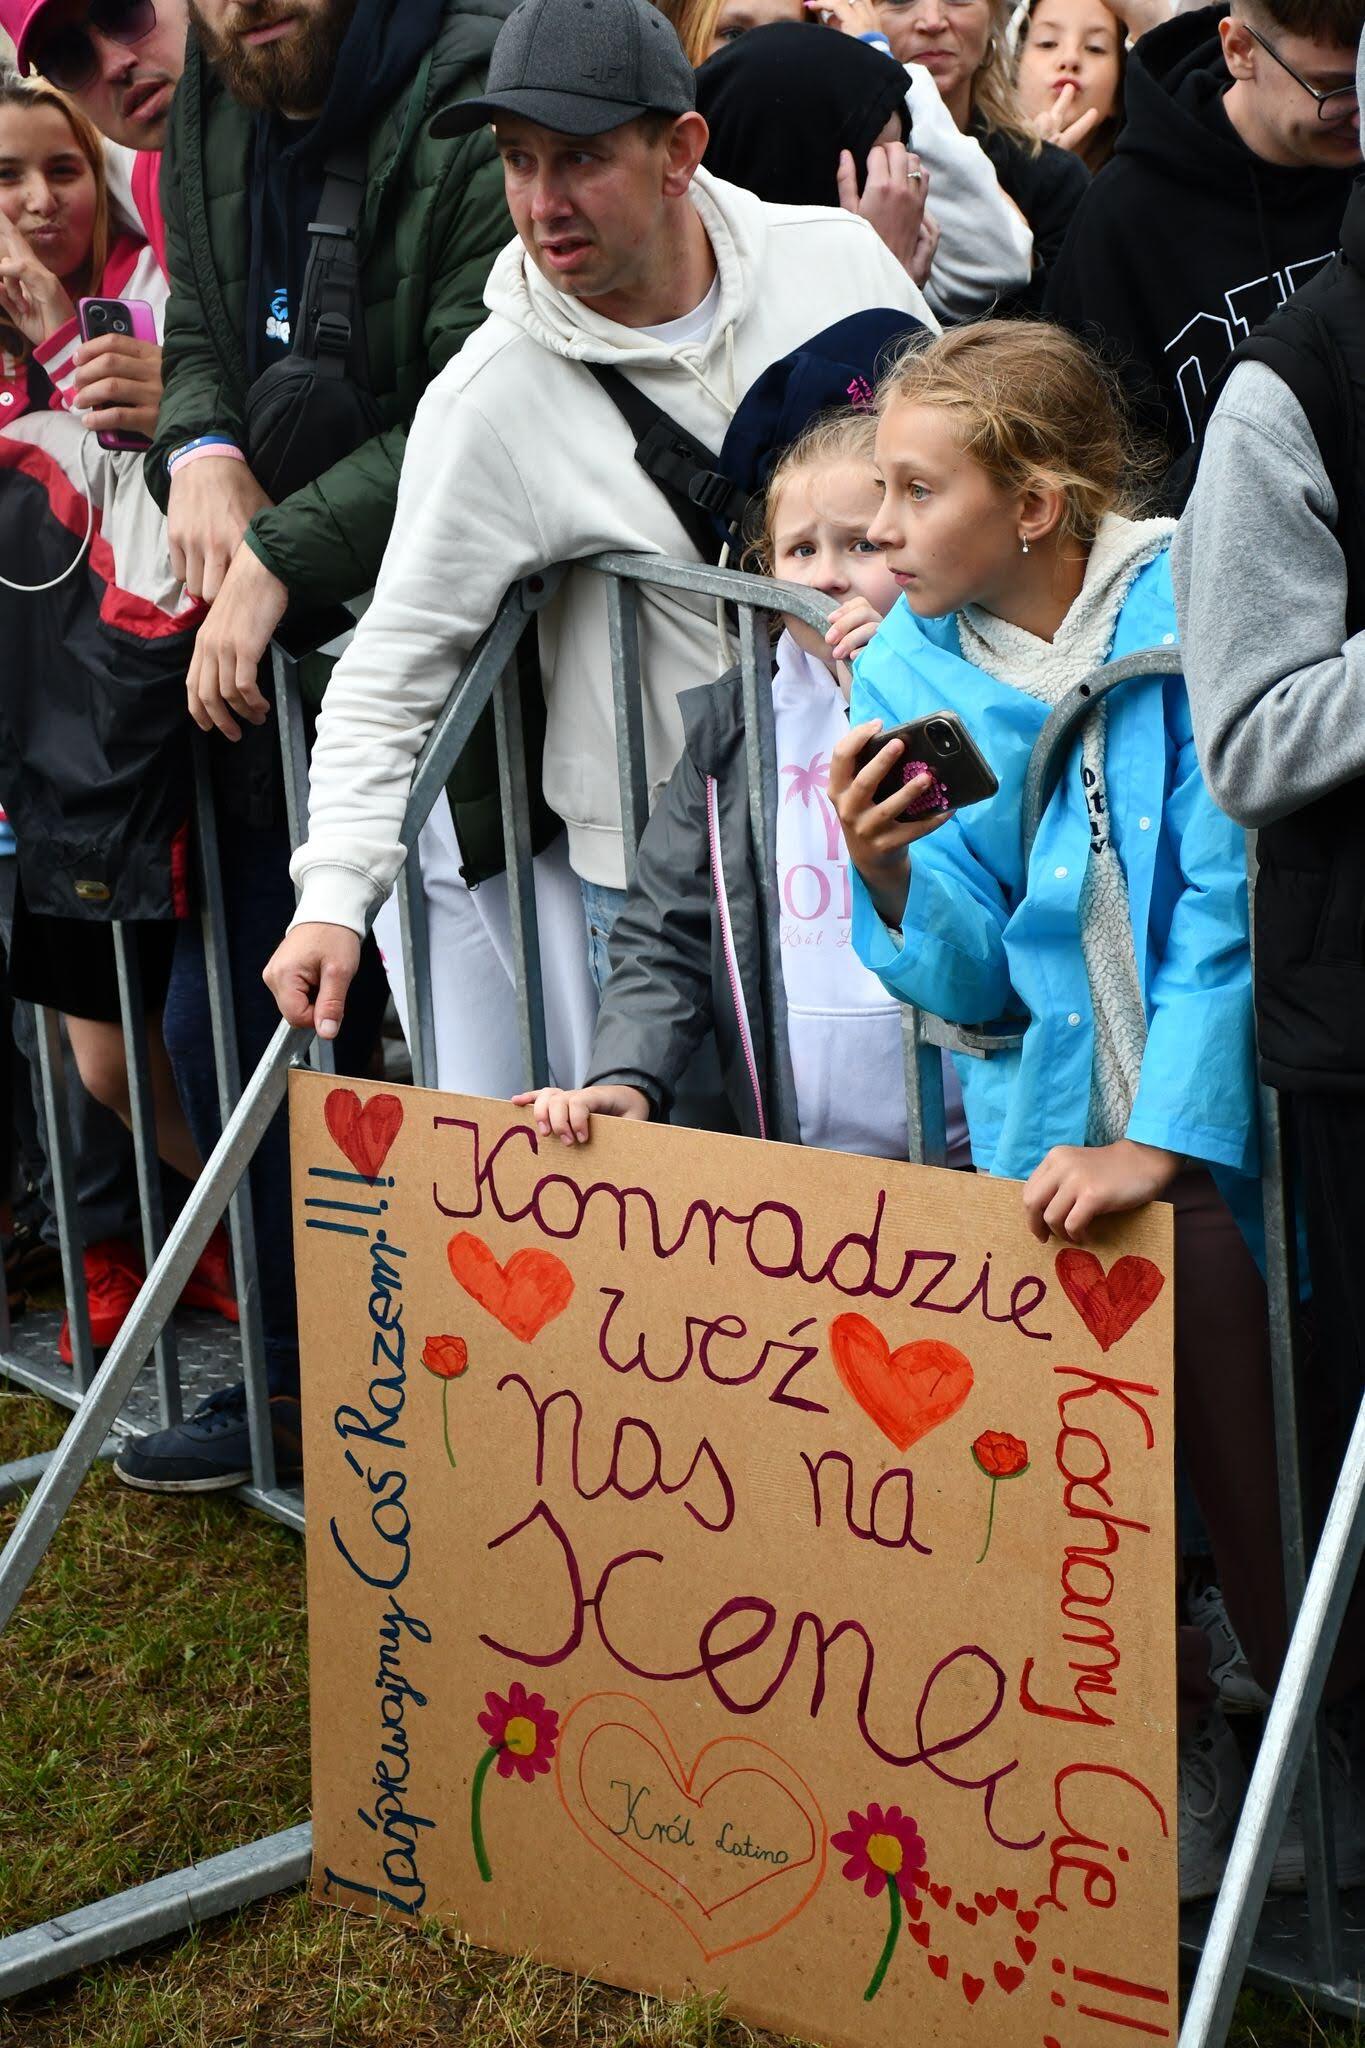 Konradzie
weź
nas na
scenę
Król Latino
Zaśpiewajmy Coś Razem!!!
Kochamy Cię!!!
4F
Król